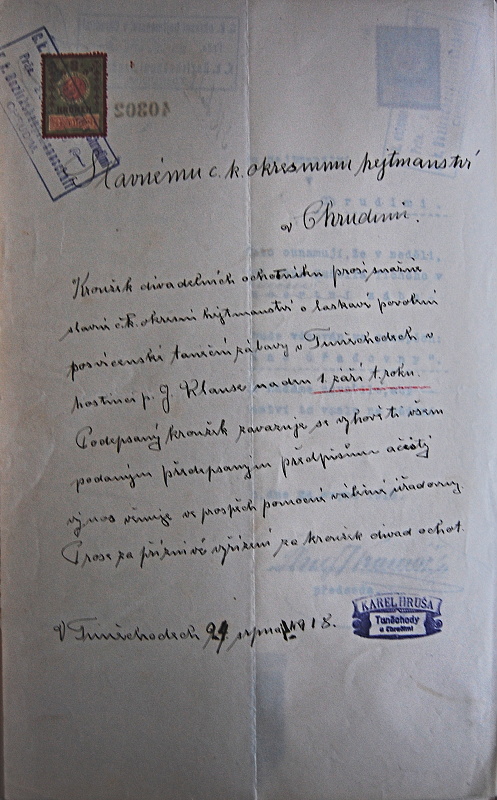 40302
Slavnému c. k. okresnímu hejtmanství
v Chrudimi.
Kroužek divadelních ochotníku prosí snažně
slavní c. k. okresní hejtmanství o laskavé povolení
posvícenski taneční zábavy v Tuněchodech v
hostinci p. J. Klause na den 1. září t. roku.
Podepsaný kroužek zavazuje se vyhověti všem
podaným předepsaným předpisům a čistý
výnos věnuje ve prospěch pomocní válečné úřadovny.
Prose za příznivé vyřízení za kroužek divad. ochot.
V Tuněchodech 24 srpna 1918.
KAREL HRUŠA
Tuněchody
u Chrudimi